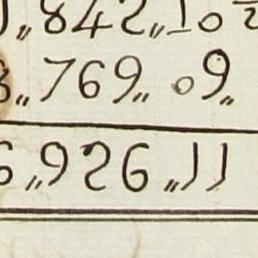 842,,10
769,,09,,
6,,926,,11